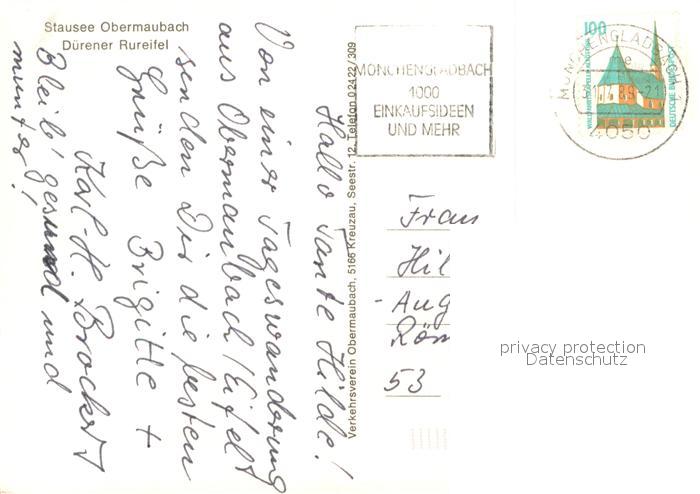 Stausee Obermaubach
Dürener Rureifel
Hallo Tante Hilde!
Von einer Tageswanderung
aus Obermaubach/Eifel
senden Dir die besten
Grüße Brigitte +
Karl-H. Brockert
Bleib' gesund und
munter!
Verkehrsverein Obermaubach, 5166 Kreuzau, Seestr. 12, Telefon 02422/309
MÖNCHENGLADBACH
1000
EINKAUFSIDEEN
UND MEHR
100
DEUTSCHE BUNDESPOST
MÖNCHENGLADBACH
4050
Frau
Hil
-Aug
Röm
53
privacy protection
Datenschutz